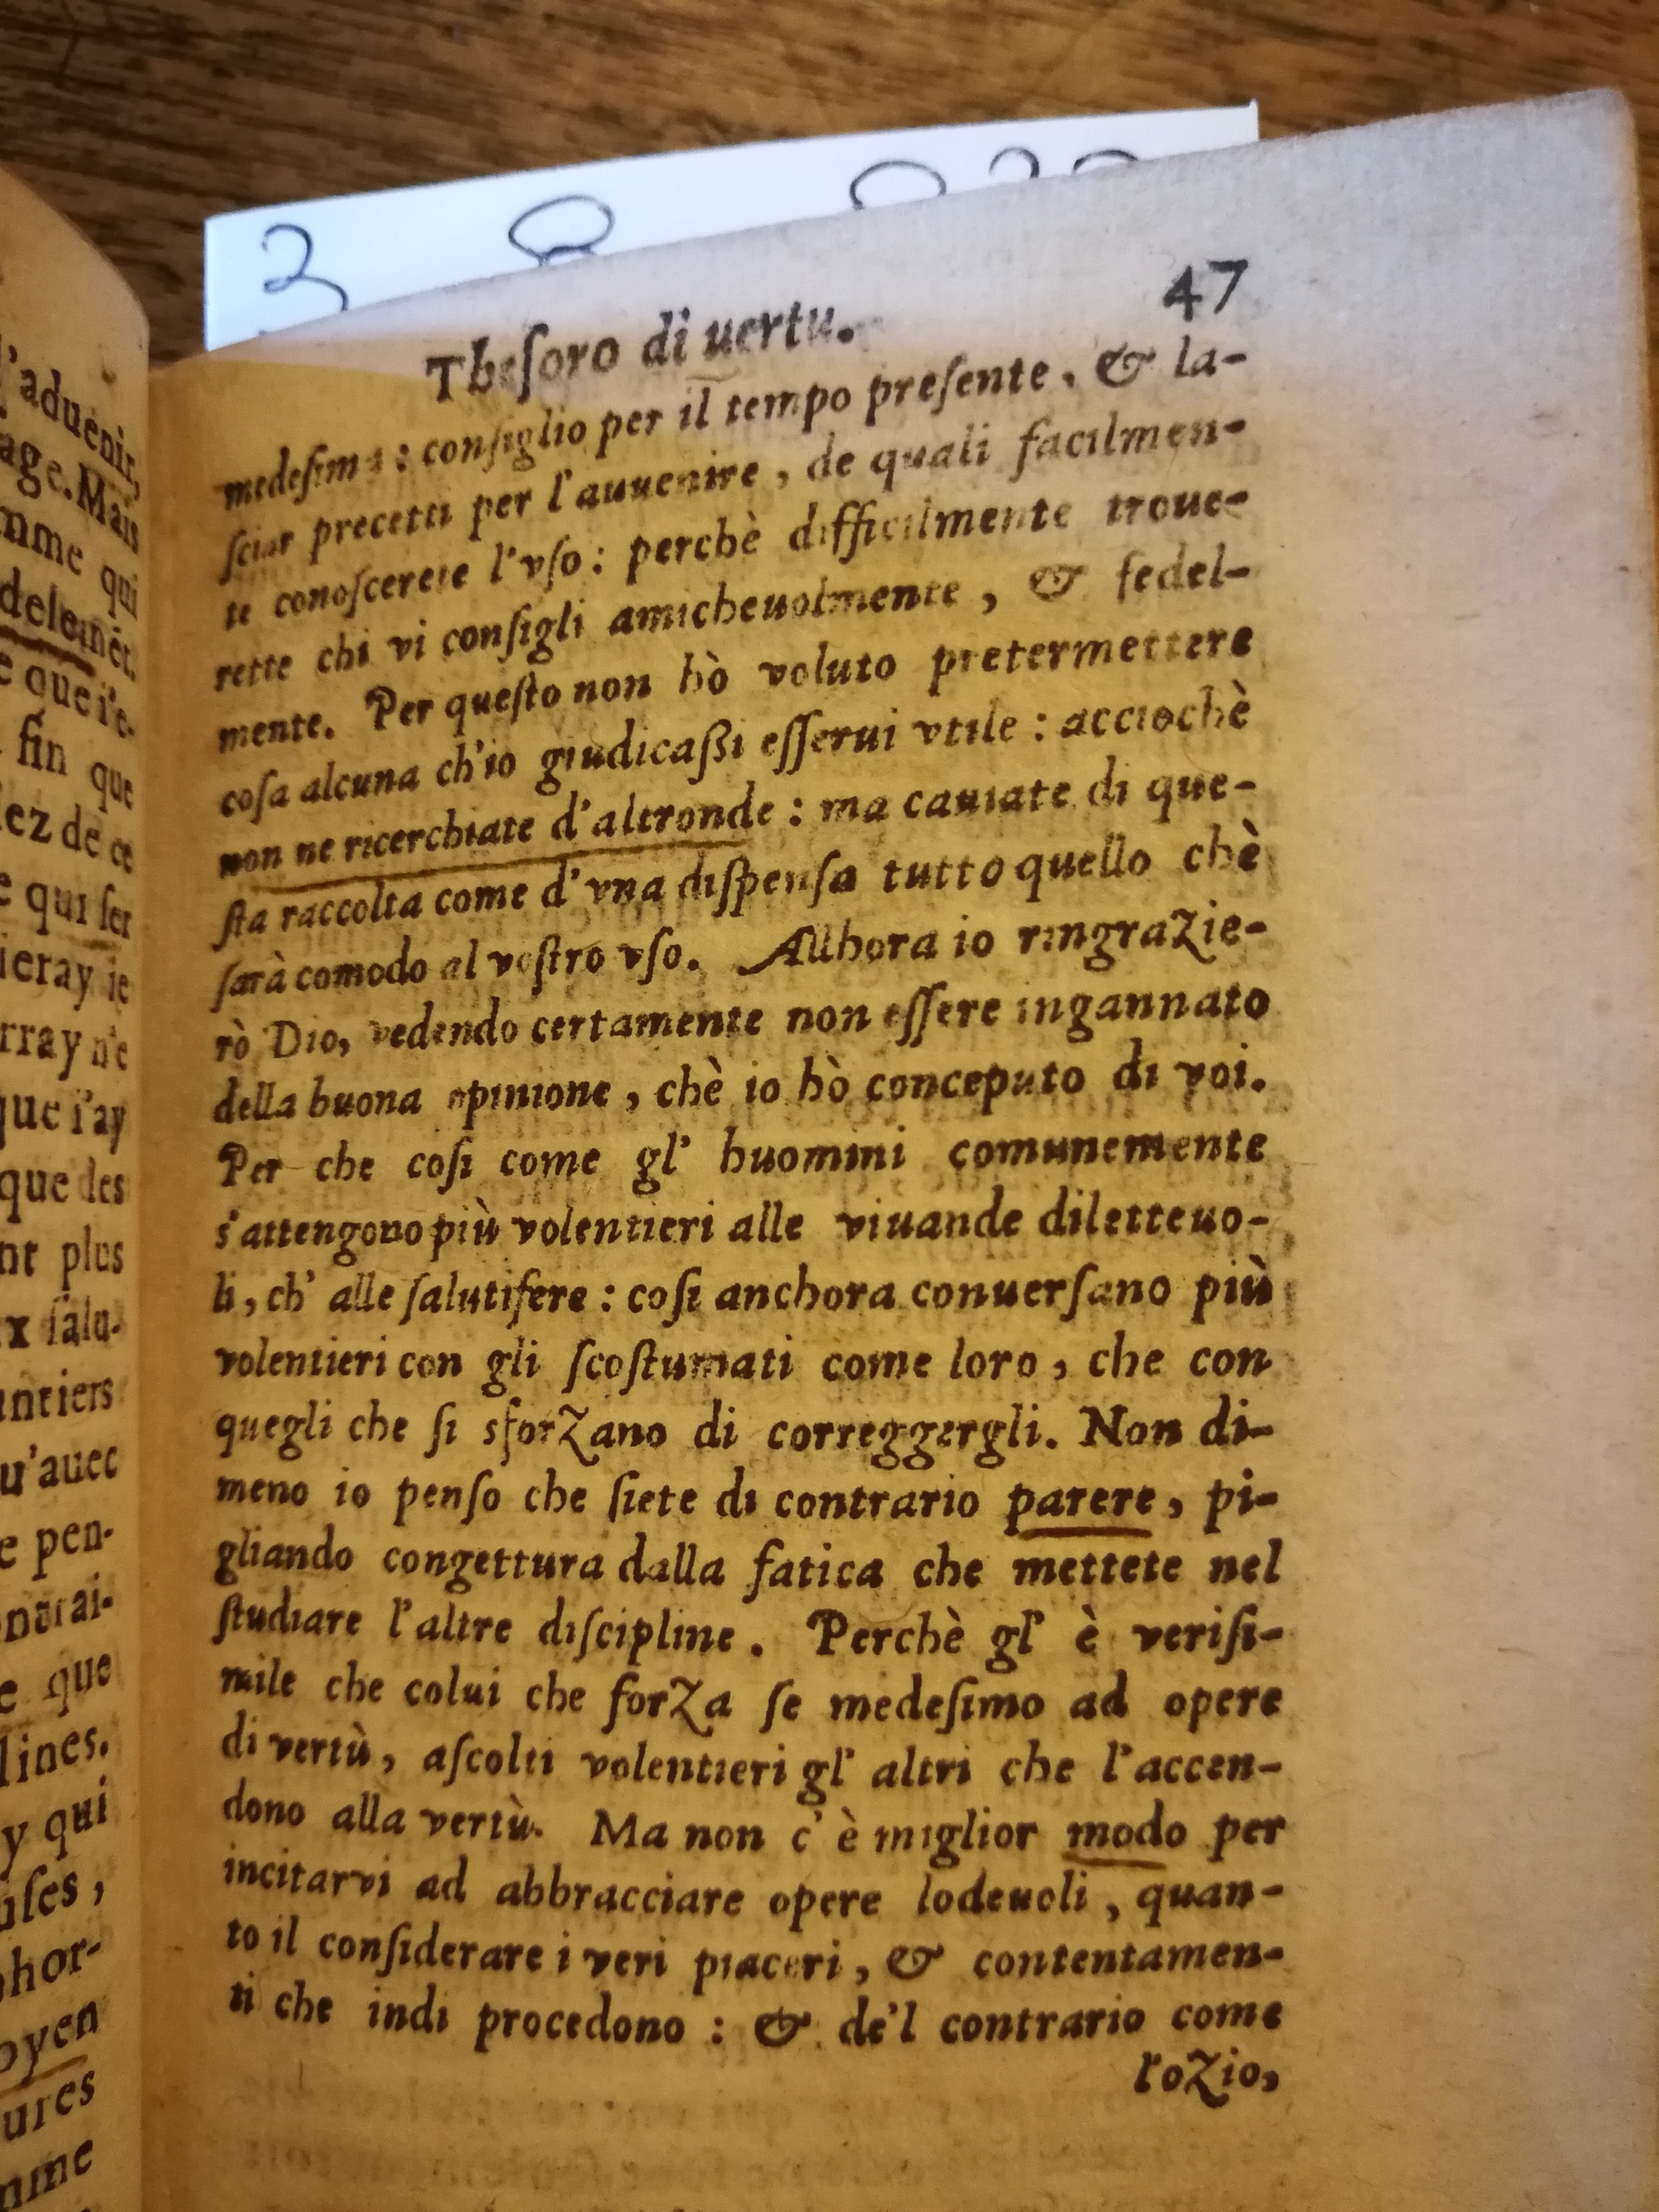 l'aduenir,
age. Mais
mme qui
delemēt.
e que i'e-
fin que
iez de ce
e qui ser
ieray ie
rray n'e
que i'ay
que des
nt plus
x ſalu-
antiers
u'auec
e pen-
e que
lines.
y qui
uſes,
phor-
oyen
ures
mme
Theſoro di uertu. 47
medeſima : conſiglio per il tempo preſente, & la-
ſciar precetti per l'auuenire, de quali facilmen-
te conoſcerete l'vſo : perchè difficilmente troue-
rette chi vi conſigli amicheuolmente, & fedel-
mente. Per queſto non hò voluto pretermettere
coſa alcuna ch'io giudicaßi eſſerui vtile : acciochè
non ne ricerchiate d'altronde : ma cauiate di que-
ſta raccolta come d'vna diſpenſa tutto quello chè
ſarà comodo al voſtro vſo. Allhora io ringrazie-
rò Dio, vedendo certamente non eſſere ingannato
della buona opinione, chè io hò conceputo di voi.
Per che coſi come gl' huomini comunemente
s'attengono più volentieri alle viuande diletteuo-
li, ch' alle ſalutifere : coſi anchora conuerſano più
volentieri con gli ſcoſtumati come loro, che con
quegli che ſi sforzano di correggergli. Non di-
meno io penſo che ſiete di contrario parere, pi-
gliando congettura dalla fatica che mettete nel
ſtudiare l'altre diſcipline. Perchè gl' è veriſi-
mile che colui che forza ſe medeſimo ad opere
di vertù, aſcolti volentieri gl' altri che l'accen-
dono alla vertù. Ma non c' è miglior modo per
incitarvi ad abbracciare opere lodeuoli, quan-
to il conſiderare i veri piaceri, & contentamen-
ti che indi procedono : & de'l contrario come
l'ozio,